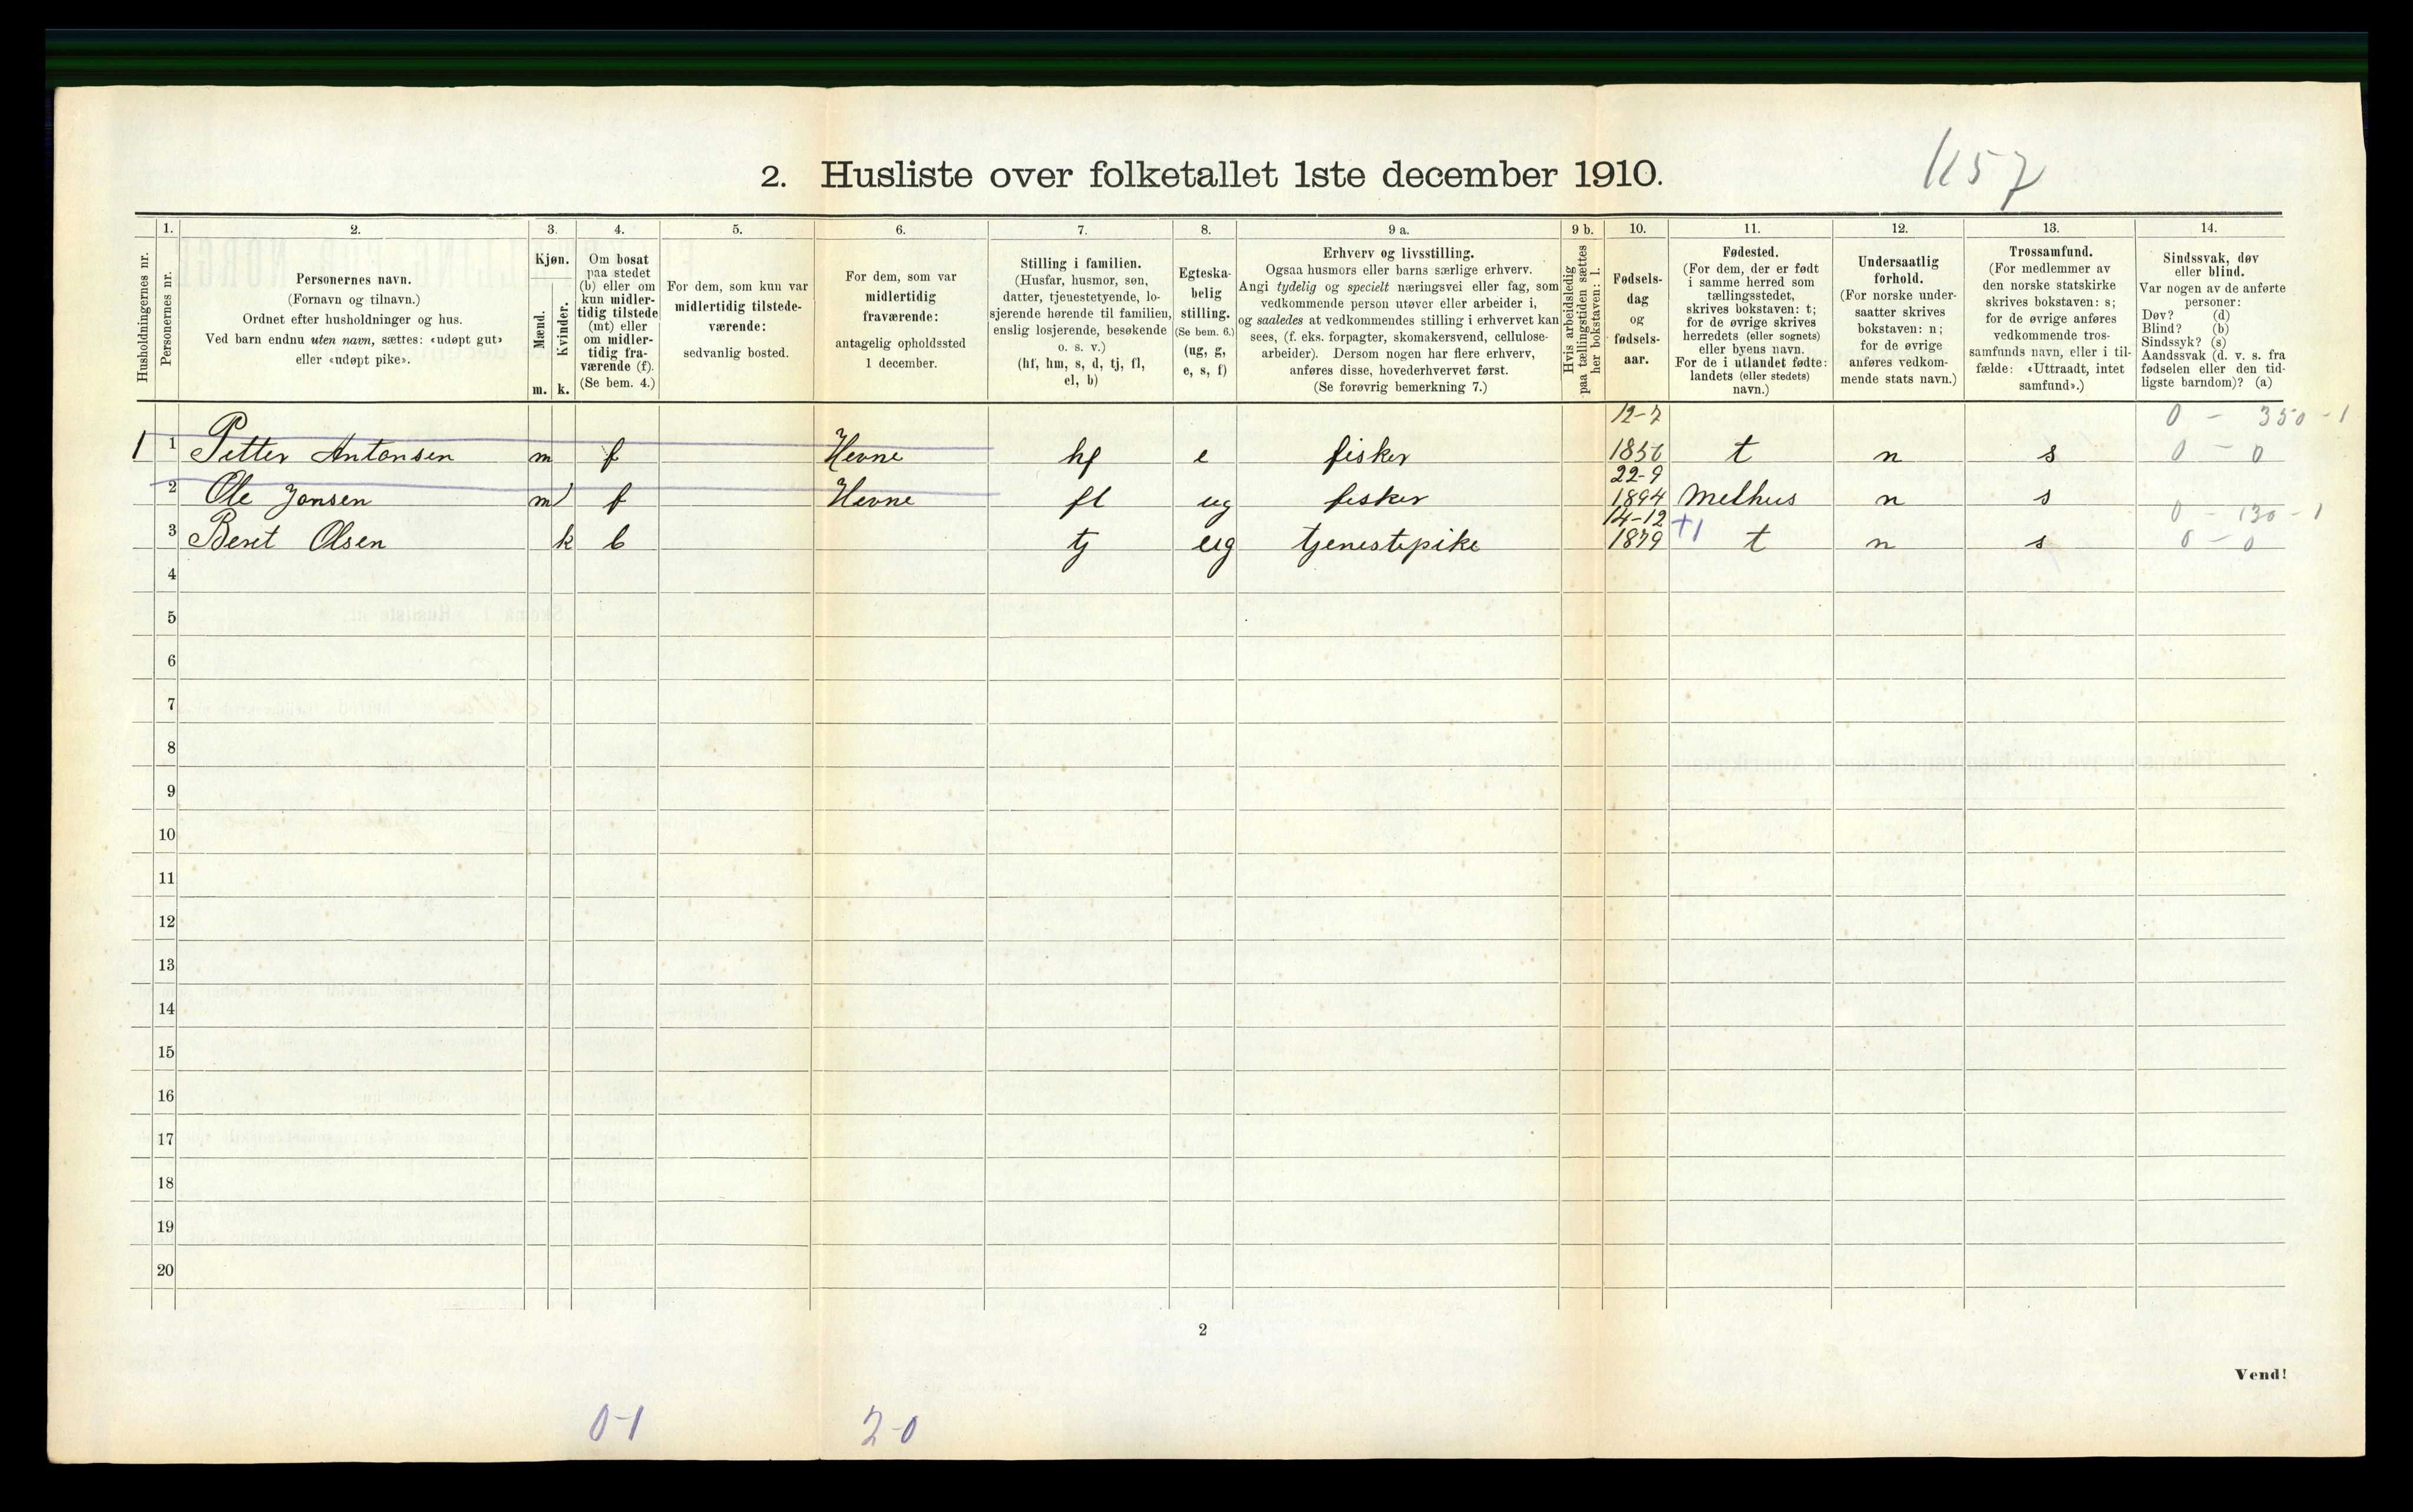 2. Husliste over folketallet 1ste december 1910.
1. 2. 3. 4. 5. 6. 7. 8. 9 a. 9 b. 10. 11. 12. 13. 14.
Husholdningernes nr.
Personernes nr.
Personernes navn.
(Fornavn og tilnavn.)
Ordnet efter husholdninger og hus.
Ved barn endnu uten navn, sættes: «udøpt gut»
eller «udøpt pike».
Kjøn.
Mænd.
Kvinder.
m. k.
Om bosat
paa stedet
(b) eller om
kun midler-
tidig tilstede
(mt) eller
om midler-
tidig fra-
værende (f).
(Se bem. 4.)
For dem, som kun var
midlertidig tilstede-
værende:
sedvanlig bosted.
For dem, som var
midlertidig
fraværende:
antagelig opholdssted
1 december.
Stilling i familien.
(Husfar, husmor, søn,
datter, tjenestetyende, lo-
sjerende hørende til familien,
enslig losjerende, besøkende
o. s. v.)
(hf, hm, s, d, tj, fl,
el, b)
Egteska-
belig
stilling.
(Se bem. 6.)
(ug, g,
e, s, f)
Erhverv og livsstilling.
Ogsaa husmors eller barns særlige erhverv.
Angi tydelig og specielt næringsvei eller fag, som
vedkommende person utøver eller arbeider i,
og saaledes at vedkommendes stilling i erhvervet kan
sees, (f. eks. forpagter, skomakersvend, cellulose-
arbeider). Dersom nogen har flere erhverv,
anføres disse, hovederhvervet først.
(Se forøvrig bemerkning 7.)
Hvis arbeidsledig
paa tællingstiden sættes
her bokstaven: l.
Fødsels-
dag
og
fødsels-
aar.
Fødested.
(For dem, der er født
i samme herred som
tællingsstedet,
skrives bokstaven: t;
for de øvrige skrives
herredets (eller sognets)
eller byens navn.
For de i utlandet fødte:
landets (eller stedets)
navn.)
Undersaatlig
forhold.
(For norske under-
saatter skrives
bokstaven: n;
for de øvrige
anføres vedkom-
mende stats navn.)
Trossamfund.
(For medlemmer av
den norske statskirke
skrives bokstaven: s;
for de øvrige anføres
vedkommende tros-
samfunds navn, eller i til-
fælde: «Uttraadt, intet
samfund».)
Sindssvak, døv
eller blind.
Var nogen av de anførte
personer:
Døv? (d)
Blind? (b)
Sindssyk? (s)
Aandssvak (d. v. s. fra
fødselen eller den tid-
ligste barndom)? (a)
12-7 0 - 350 - 1
1 1 Petter Antonsen m f Hevne hf e fisker 1856 t n s 0 - 0
22-9
2 Ole Jonsen m f Hevne fl ug fisker 1894 Melhus n s
14-12 +1 0 - 130 - 1
3 Beret Olsen k b tj ug tjenestepike 1879 t n s 0 - 0
4
5
6
7
8
9
10
11
12
13
14
15
16
17
18
19
20
2
Vend!
0-1 2-0